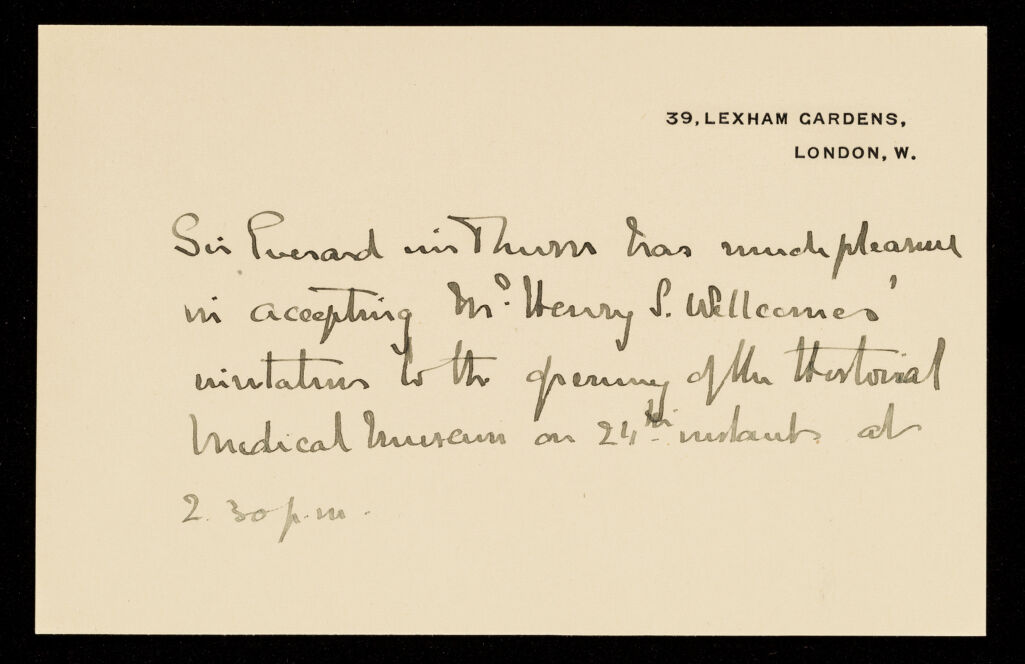 39, LEXHAM GARDENS,
LONDON, W.
Sir Everard im Thurn has much pleasure
in accepting Mr. Henry S. Wellcomes'
invitation to the opening of the Historical
Medical Museum on 24th instant at
2.30 p.m.